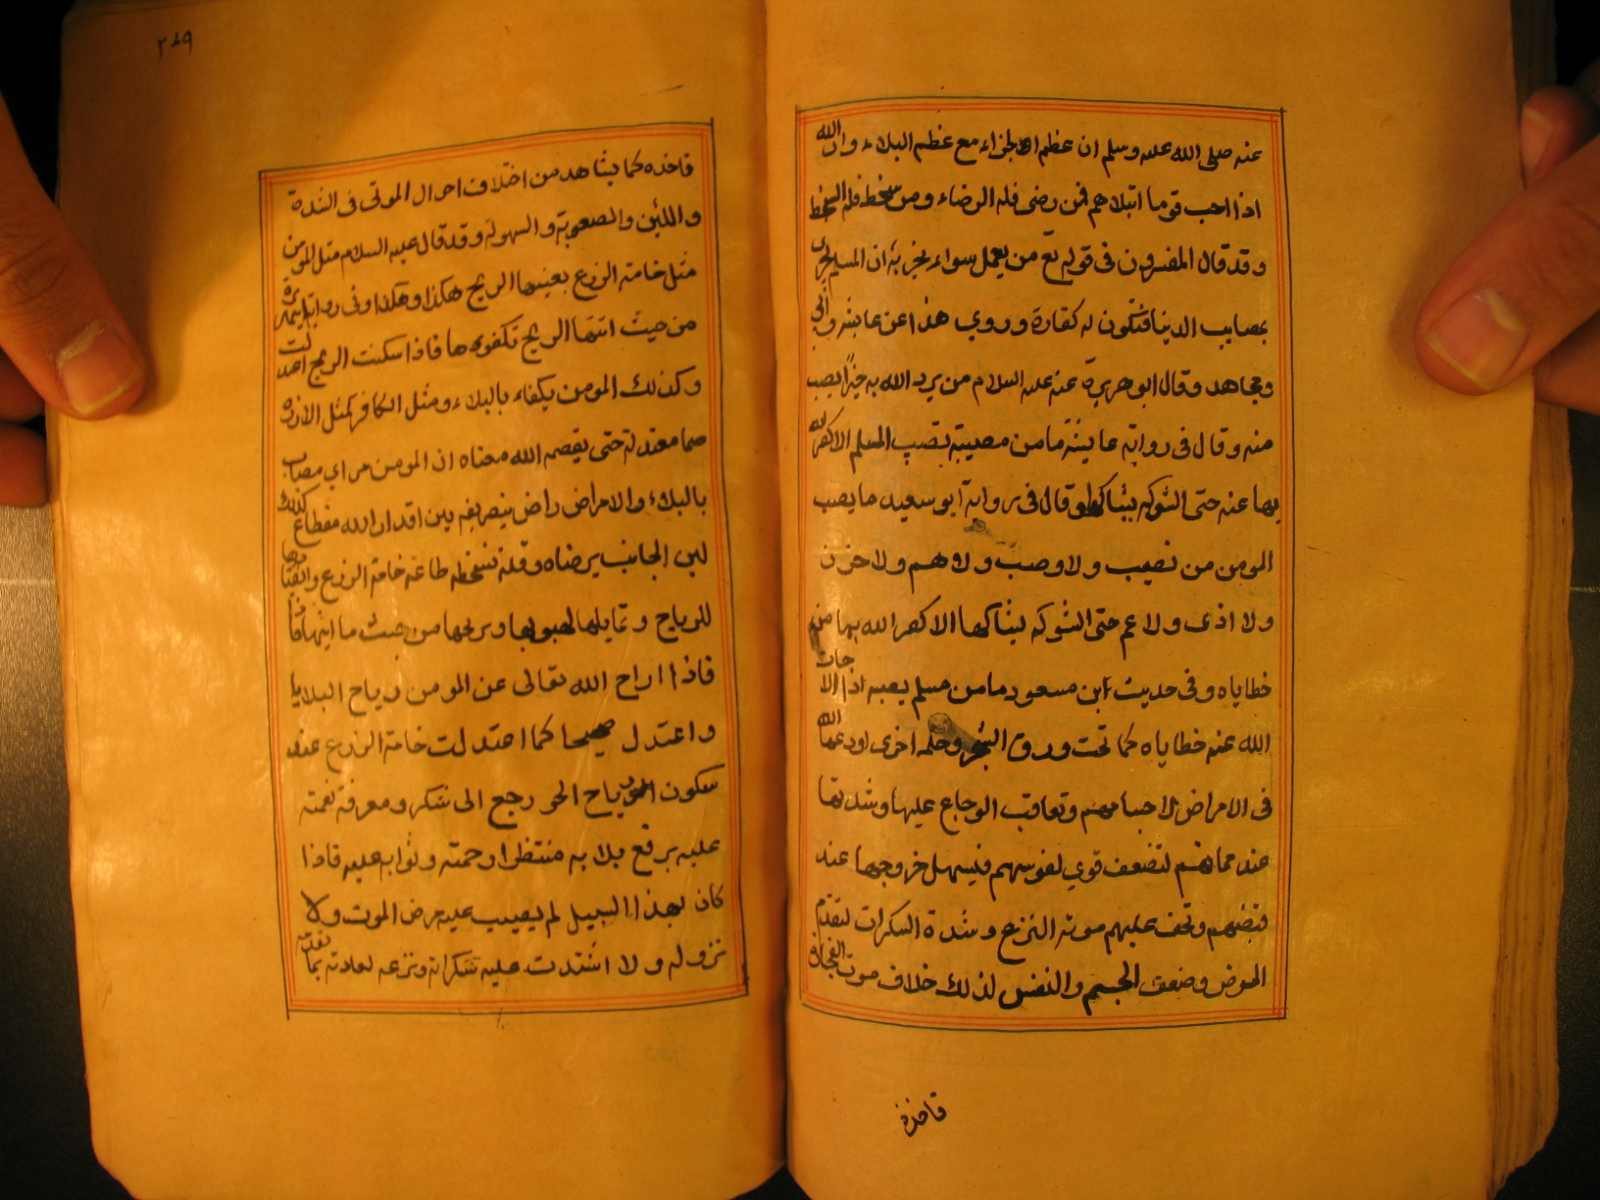 عنه صلى الله عليه وسلم ان عظم الجزاء مع عظم البلاء وان الله
اذا احب قوما ابتلاهم فمن رضى فله الرضاء ومن سخط فله السخط
وقد قال المفسرون فى قوله تع من يعمل سواء يجز به ان المسلم يجزى
بمصايب الدينا فتكون له كفارة وروي هذا عن عايشه وابي
ومجاهد وقال ابو هريرة عنه عليه السلام من يرد الله به خيرا يصب
منه وقال فى رواية عايشة ما من مصيبة تصيب المسلم الا كفر الله
بها عنه حتى الشوكه يشاكها وقال فى رواية ابو سعيد ما يصب
المومن من نصيب ولا وصب ولا هم ولا حزن
ولا اذى ولا غم حتى الشوكه يشاكها الا كفر الله بها من
خطاياه وفى حديث ابن مسعود ما من مسلم يصبه اذا الا حات
الله عنه خطاياه كما تحت ورق الشجر وحكمه اخرى اودعها الله
فى الامراض لاجسامهم وتعاقب الوجاع عليها وشدتها
عند مماتهم لتضعف قوي نفوسهم فيسهل خروجها عند
قبضهم وتخف عليهم موته النزع وشدة السكرات لتقدم
المرض وضعف الجسم والنفس لذلك خلاف موت الفجاءة
فاخذه
٢٧٩
فاخذه كما يشاهد من اختلاف احوال الموتى فى الشدة
واللين والصعوبة والسهولة وقد قال عليه السلام مثل المومن
مثل خامة الزرع تفيئها الريح هكذا وهكذا وفى رواية ابي هريرة
من حيث اتتها الريح تكفوها فاذا سكنت الريح اعتدلت
وكذلك المومن يكفاء بالبلاء ومثل الكافر كمثل الارزة
صما معتدلة حتى يقصمه الله معناه ان المومن مرزاي مصاب
بالبلاء والامراض راض بتصريفه بين اقدار الله منطاع كذلك
لين الجانب برضاه وقلة تسخطه طاعة خامة الزرع وانقيادها
للرياح وتمايلها لهبوبها وترنحها من حيث ما اتيتها فاذا
فاذا اراح الله تعالى عن المومن رياح البلايا
واعتدل صحيحا كما اعتدلت خامة الزرع عند
سكون رياح الجو رجع الى شكر ومعرفة نعمته
عليه برفع بلابه منتظرا رحمته وثوابه عليه فاذا
كان بهذا السبيل لم يصيب عليه مرض الموت ولا
نزوله ولا اشتدت عليه سكراته ونزعه لعادته بما تقدمه